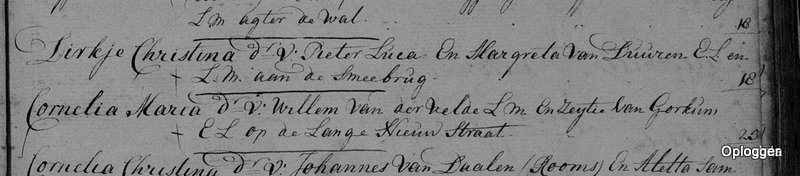 L.M. agter de Wal.
18
Dirkje Christina dr. v: Pieter Luca En Margreta Van Duuren E.L. in
L.M. aan de Smeebrug.
18
Cornelia Maria dr. v: Willem Van der Velde L.M. En Zeytie Van Gorkum
E.L. op de Lange Nieuw Straat.
25
Cornelia Christina dr. v: Johannes Van Daalen (Rooms) En Aletta
Oploggen